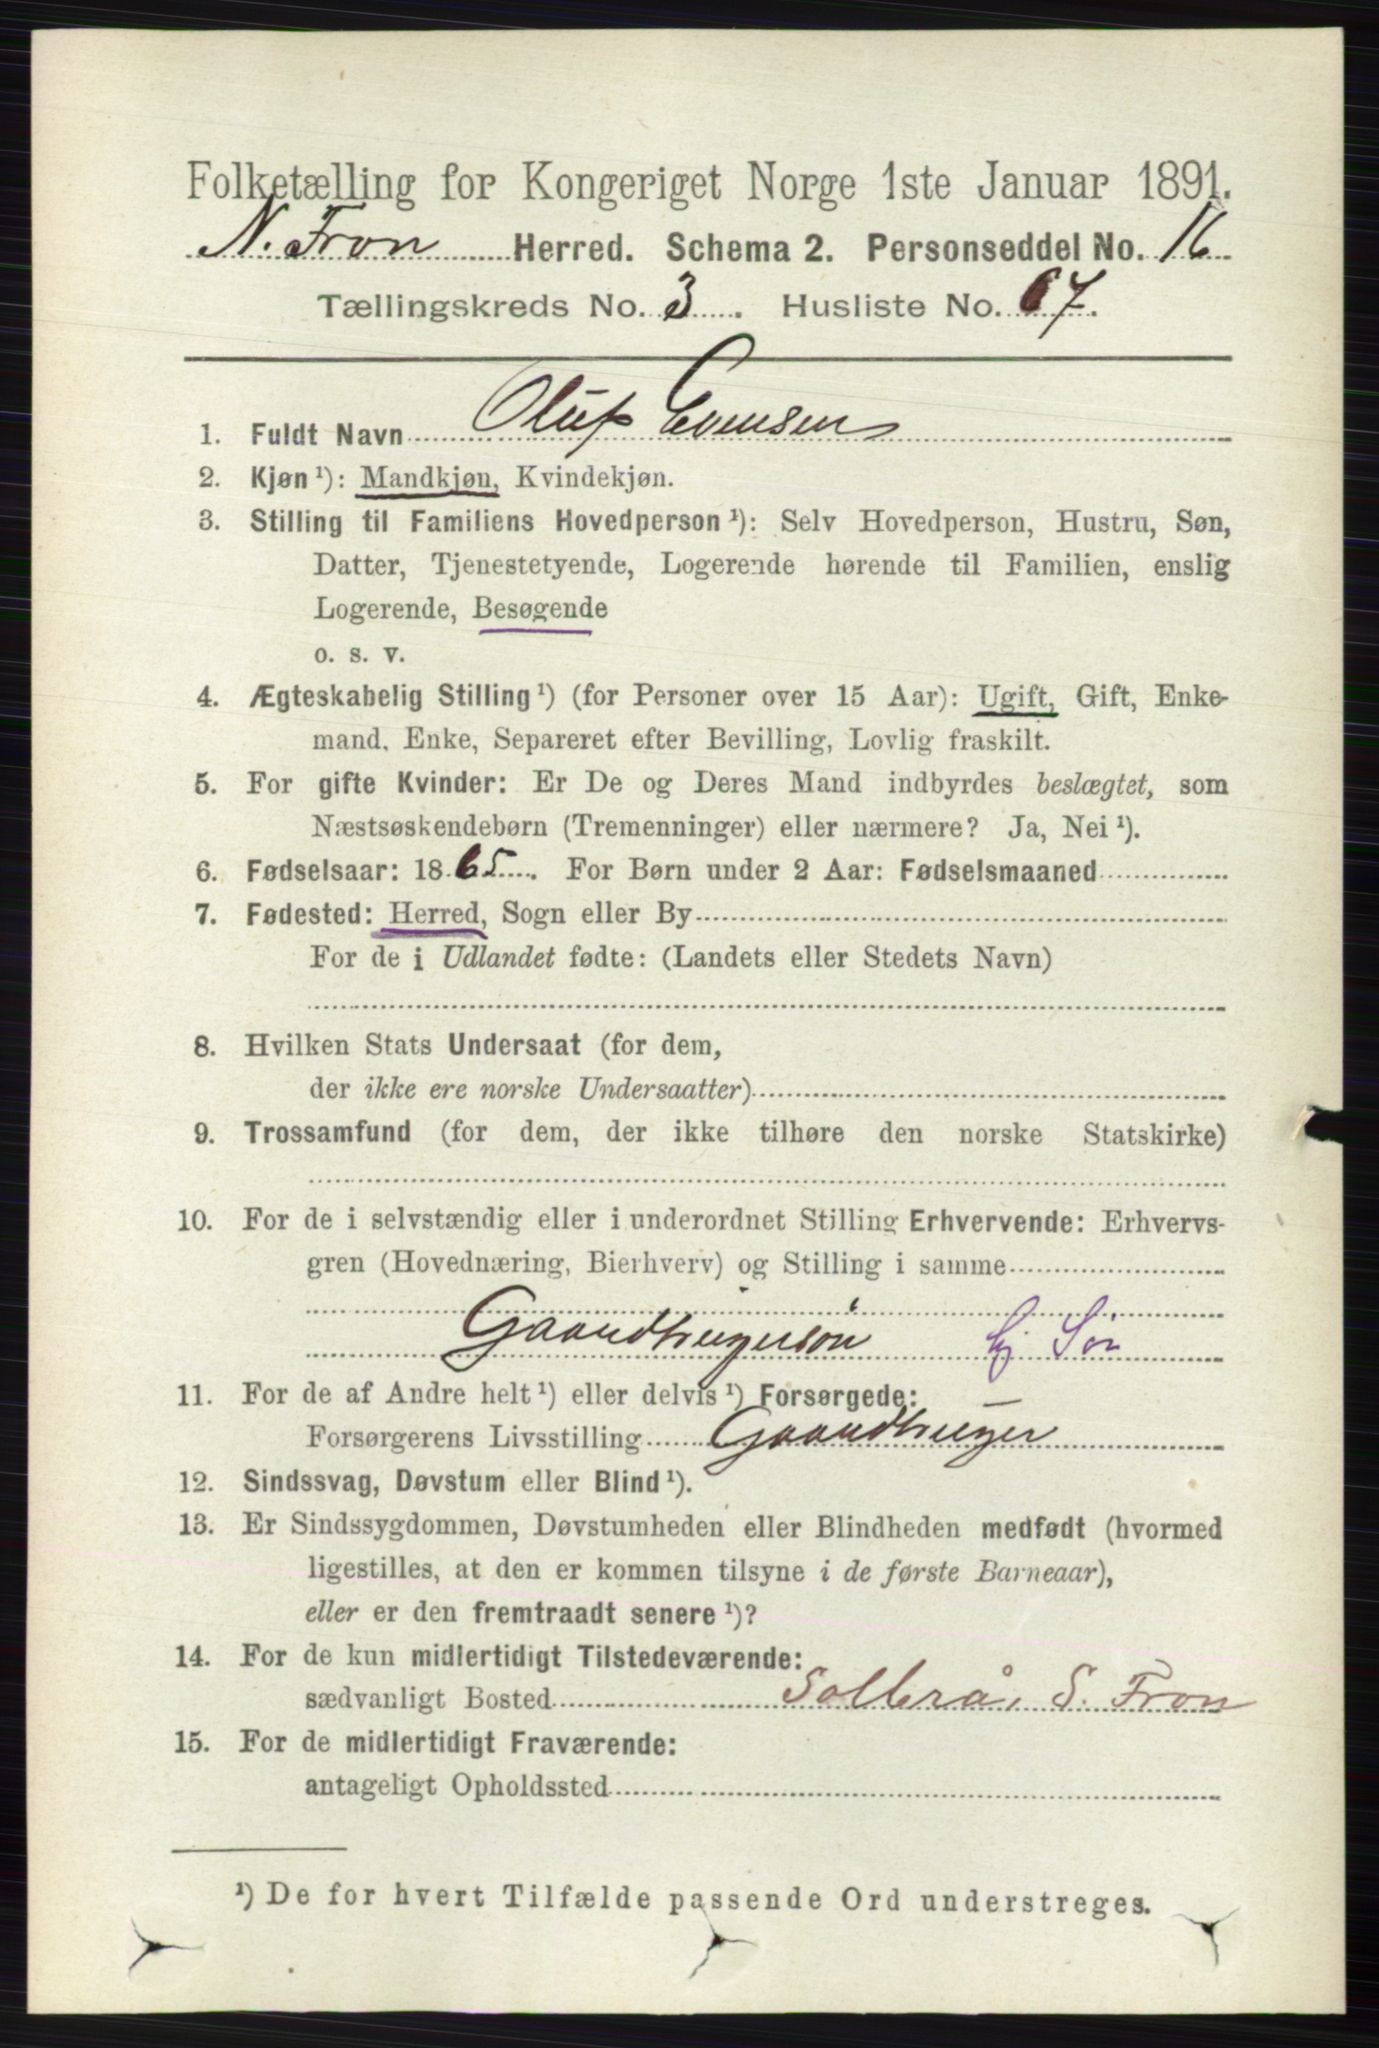 Folketælling for Kongeriget Norge 1ste Januar 1891.
N. Fron Herred. Schema 2. Personseddel No. 16
Tællingskreds No. 3. Husliste No. 67.
1. Fuldt Navn Oluf Evensen
2. Kjøn ¹): Mandkjøn, Kvindekjøn.
3. Stilling til Familiens Hovedperson ¹): Selv Hovedperson, Hustru, Søn,
Datter, Tjenestetyende, Logerende hørende til Familien, enslig
Logerende, Besøgende
o. s. v.
4. Ægteskabelig Stilling ¹) (for Personer over 15 Aar): Ugift, Gift, Enke-
mand, Enke, Separeret efter Bevilling, Lovlig fraskilt.
5. For gifte Kvinder: Er De og Deres Mand indbyrdes beslægtet, som
Næstsøskendebørn (Tremenninger) eller nærmere? Ja, Nei ¹).
6. Fødselsaar: 1865. For Børn under 2 Aar: Fødselsmaaned
7. Fødested: Herred, Sogn eller By
For de i Udlandet fødte: (Landets eller Stedets Navn)
8. Hvilken Stats Undersaat (for dem,
der ikke ere norske Undersaatter)
9. Trossamfund (for dem, der ikke tilhøre den norske Statskirke)
10. For de i selvstændig eller i underordnet Stilling Erhvervende: Erhvervs-
gren (Hovednæring, Bierhverv) og Stilling i samme
Gaardbrugersøn Søn
11. For de af Andre helt ¹) eller delvis ¹) Forsørgede:
Forsørgerens Livsstilling Gaardbruger
12. Sindssvag, Døvstum eller Blind ¹).
13. Er Sindssygdommen, Døvstumheden eller Blindheden medfødt (hvormed
ligestilles, at den er kommen tilsyne i de første Barneaar),
eller er den fremtraadt senere ¹)?
14. For de kun midlertidigt Tilstedeværende:
sædvanligt Bosted Solbrå, S. Fron
15. For de midlertidigt Fraværende:
antageligt Opholdssted
¹) De for hvert Tilfælde passende Ord understreges.